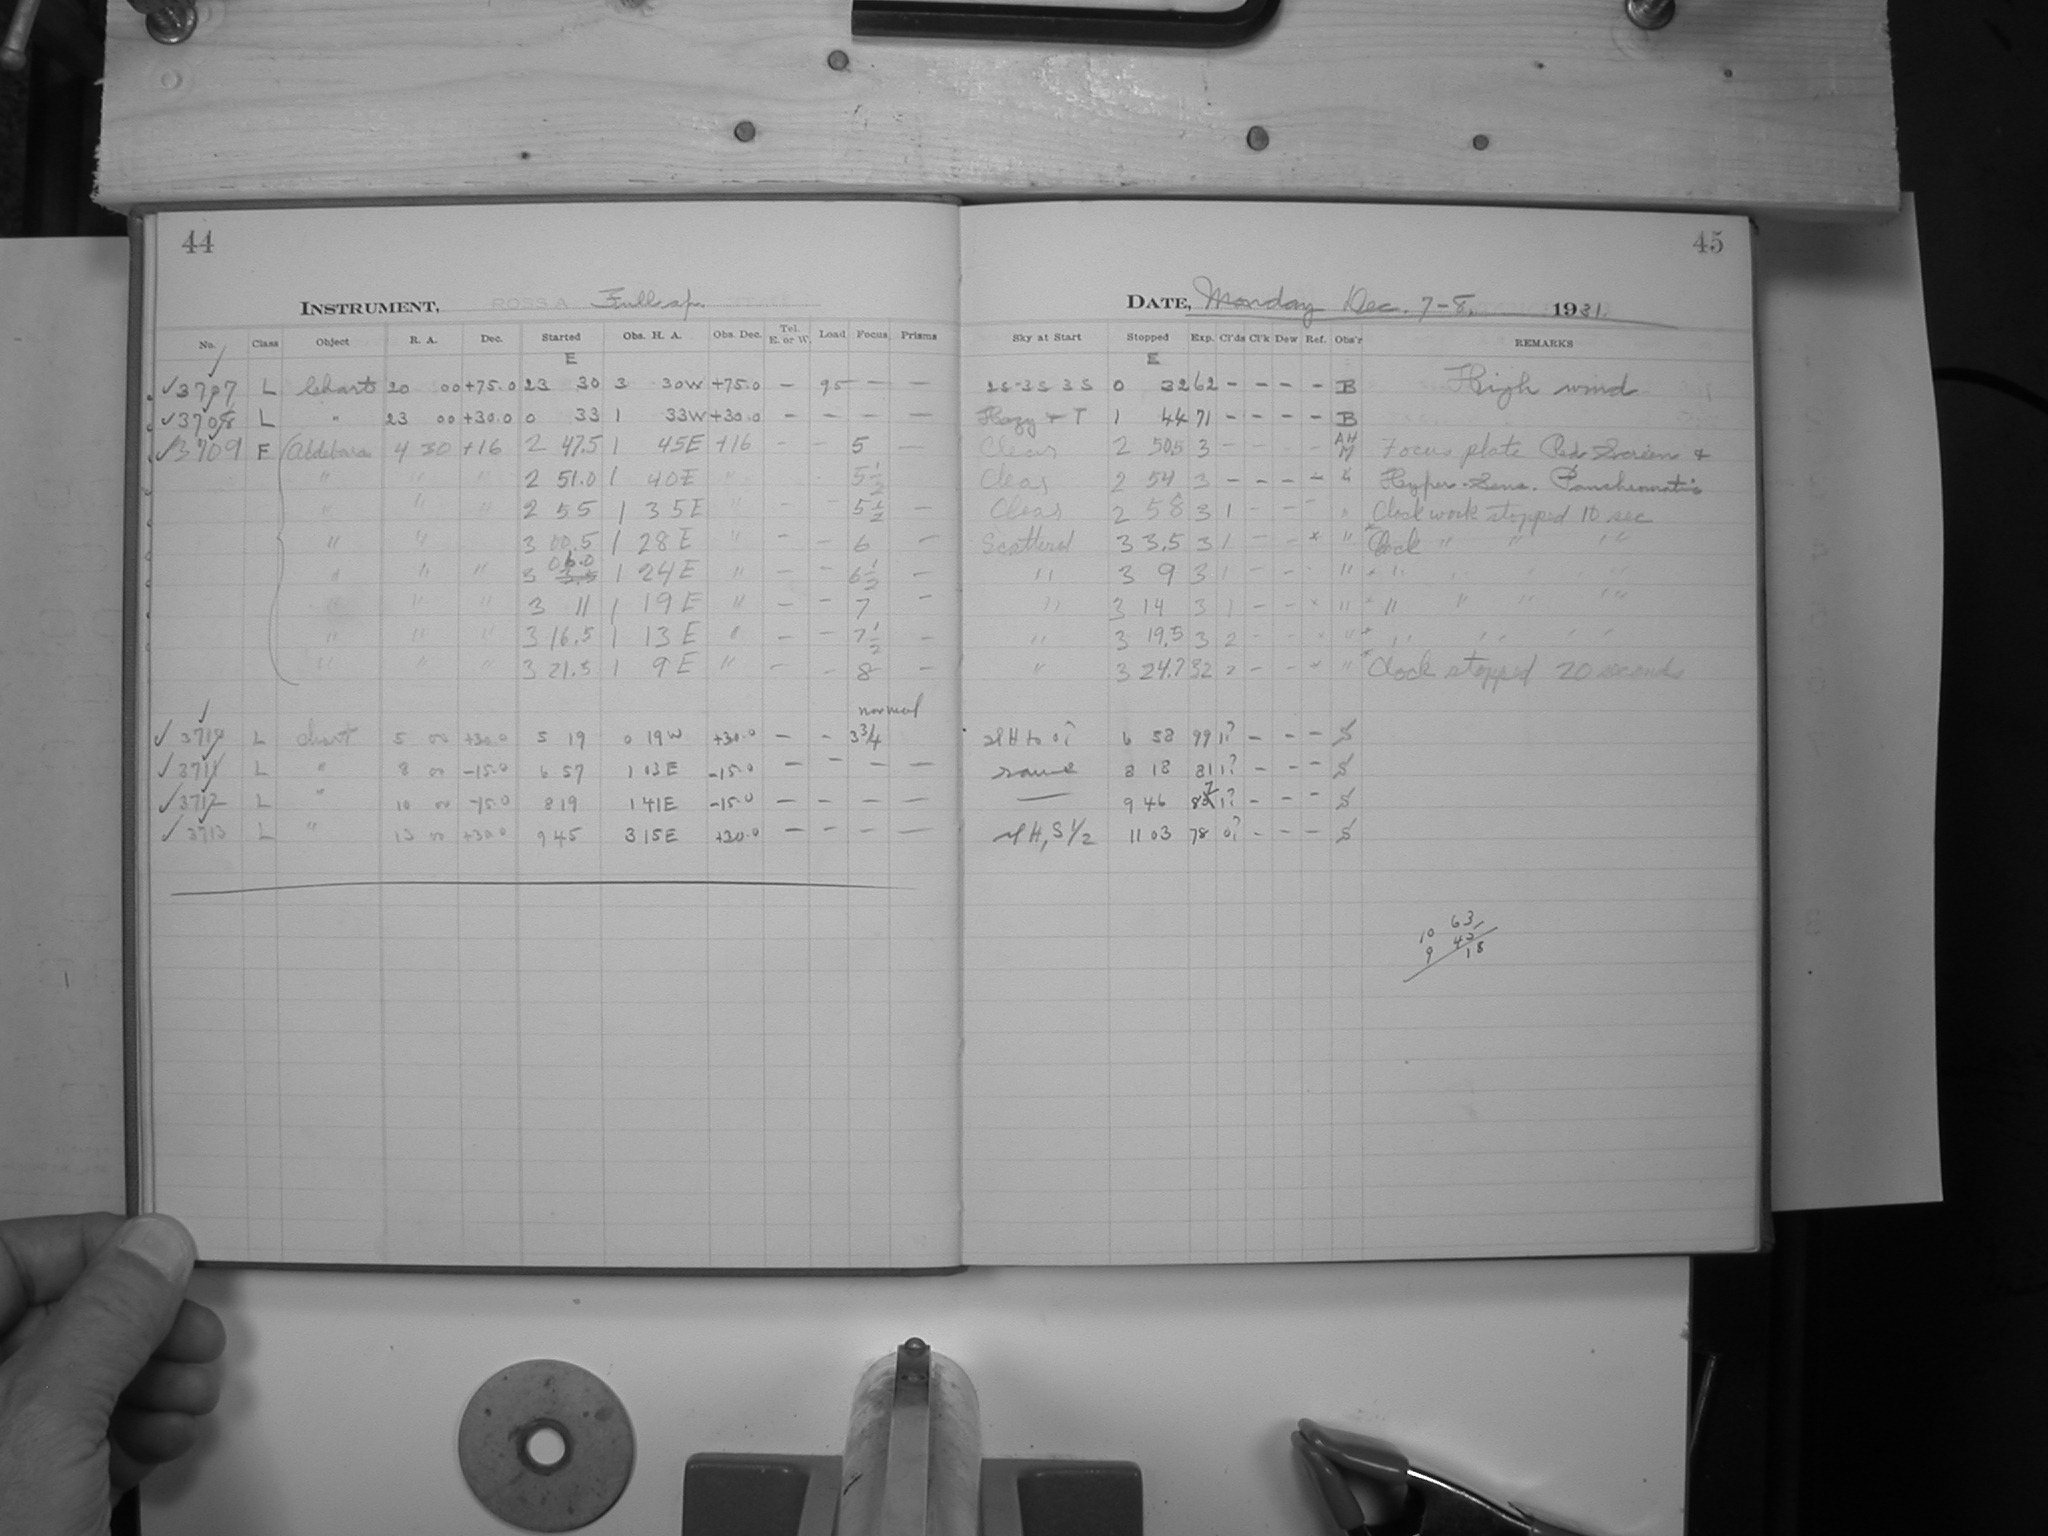 44
45
INSTRUMENT, ROSS A Full ap.
DATE, Monday Dec. 7-8, 1931
No. Class Object R. A. Dec. Started Obs. H. A. Obs. Dec. Tel. E. or W. Load Focus Prisms Sky at Start Stopped Exp. Cl'ds Cl'k Dew Ref. Obs'r REMARKS
E E
✓3707 L Chart 20 00 +75.0 23 30 3 30W +75.0 - 95 - - 2S-3S 3S 0 32 62 - - - - B High wind
✓3708 L " 23 00 +30.0 0 33 1 33W +30.0 - - - - Hazy + T 1 44 71 - - - - B
✓3709 F Aldebaran 4 30 +16 2 47.5 1 45E +16 - - 5 - Clear 2 50.5 3 - - - AH M Focus plate Red Screen +
" " " 2 51.0 1 40E " 5½ Clear 2 54 3 - - - - " Hyper-Sens. Panchromatic
" " " 2 55 1 35E " 5½ Clear 2 58 3 1 - - - " Clock work stopped 10 sec
" " 3 00.5 1 28E " - - 6 - Scattered 3 3.5 3 1 - - * " * Clock " " "
" " " 3 06.0 3.5 1 24E " - - 6½ - " 3 9 3 1 " * " " " "
" " " 3 11 1 19E " - - 7 - " 3 14 3 1 - - * " * " " " "
" " " 3 16.5 1 13E " - - 7½ - " 3 19.5 3 2 - - * " * " " "
" " " 3 21.5 1 9E " - - 8 - " 3 24.7 32 2 - - * " * Clock stopped 20 seconds
normal
✓3710 L chart 5 00 +30.0 5 19 0 19W +30.0 - - 3¾ slH to 0? 6 58 99 1? - - - S
✓3711 L " 8 00 -15.0 6 57 1 03E -15.0 - - - - same 8 18 81 1? - - - S
✓3712 L " 10 00 -15.0 8 19 1 41E -15.0 - - - - — 9 46 87 1? - - - S
✓3713 L " 13 00 +30.0 9 45 3 15E +30.0 - - - - slH, S½ 11 03 78 0? - - - S
10 63
9 42
18